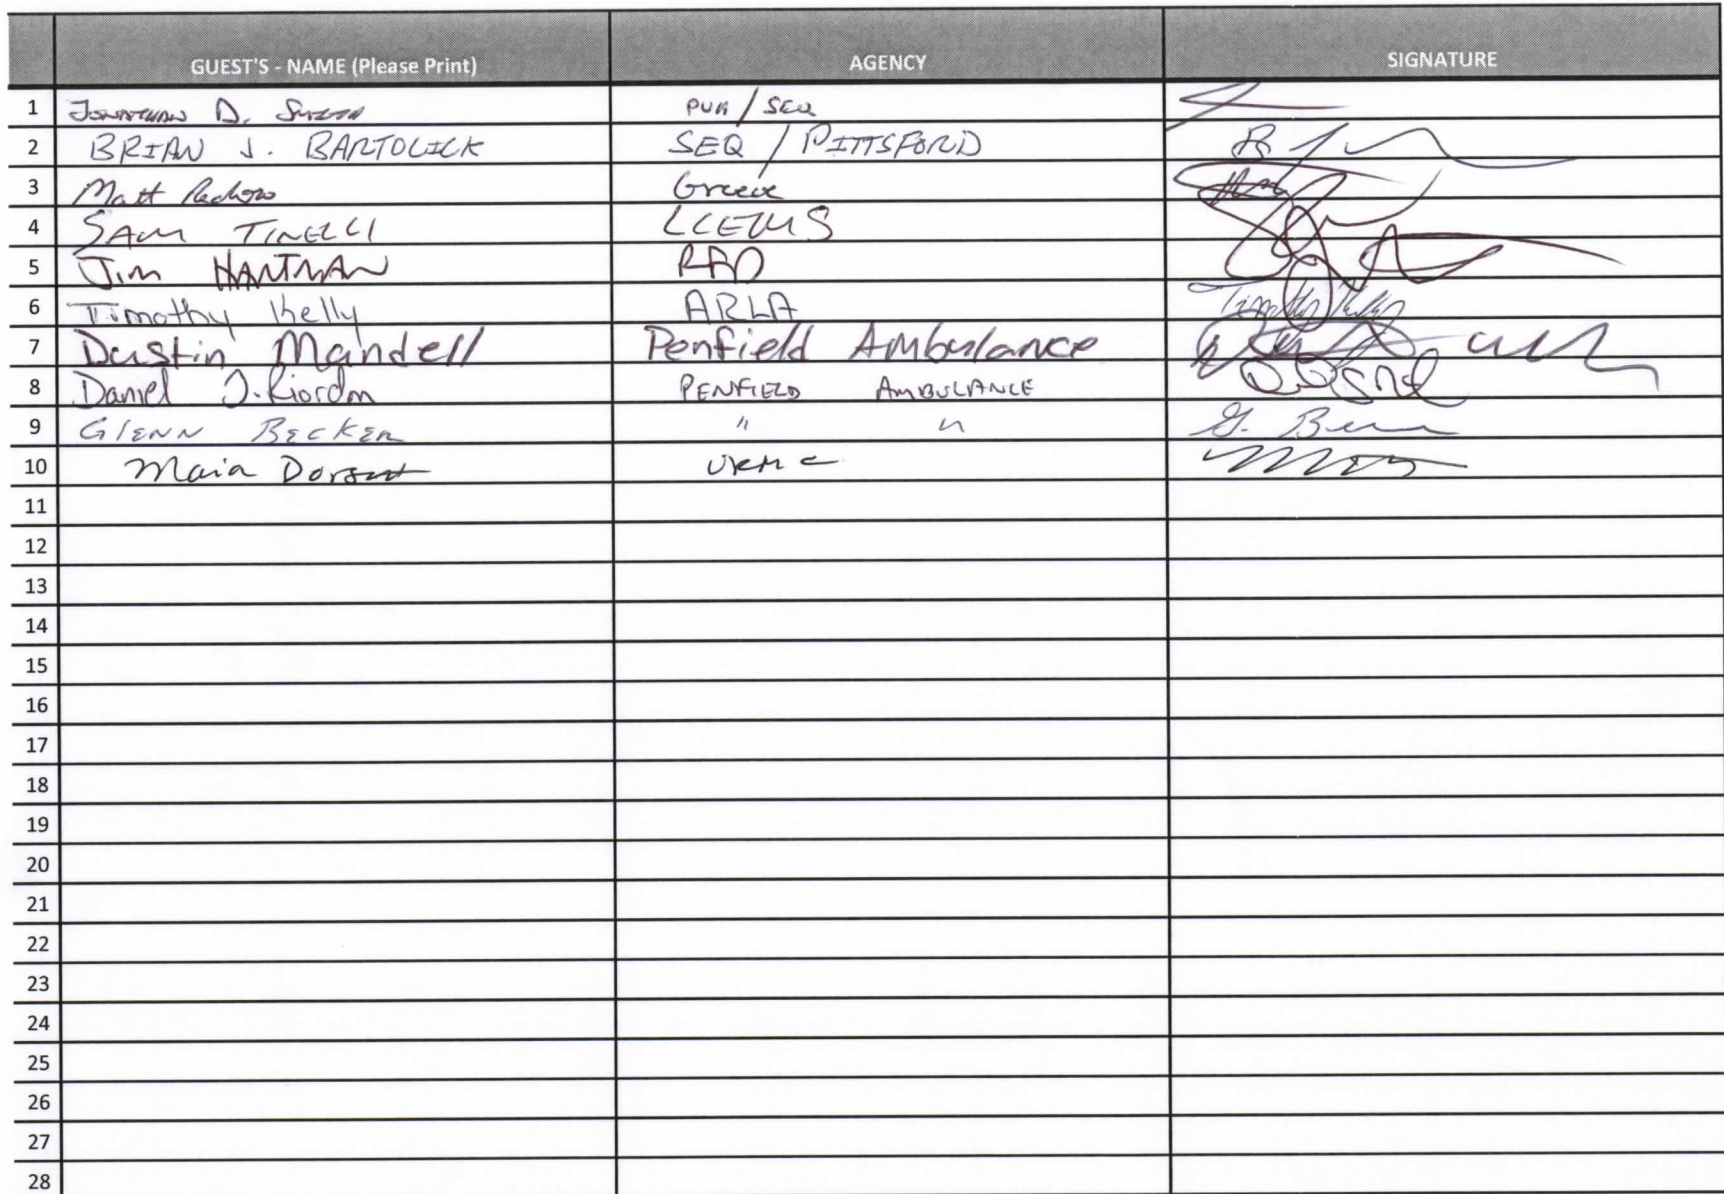 GUEST'S - NAME (Please Print) AGENCY SIGNATURE
1 Jonathan D. Smith PUR / SEQ
2 BRIAN J. BARTOLICK SEQ / PITTSFORD
3 Matt Greece
4 SAM TINELLI LCEMS
5 Jim HARTMAN
6 Timothy Kelly ARLA Timothy Kelly
7 Dustin Mandell Penfield Ambulance
8 Daniel J. Riordon PENFIELD AMBULANCE
9 GLENN BECKER " " G. Be
10 Maia Dorsett URMC
11
12
13
14
15
16
17
18
19
20
21
22
23
24
25
26
27
28